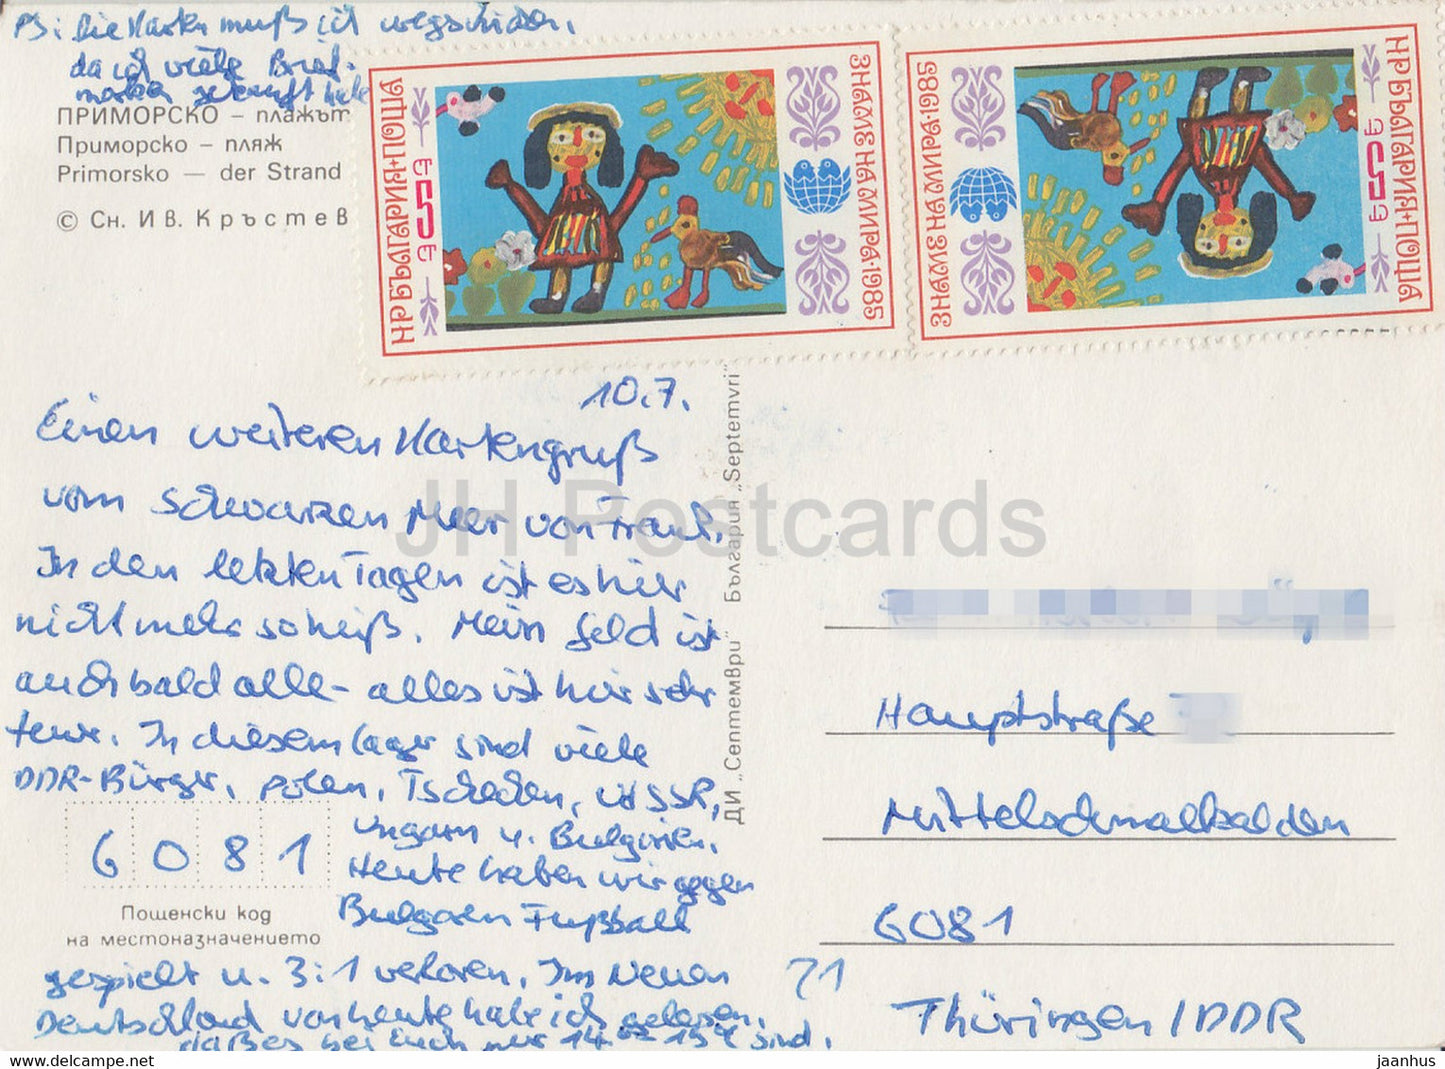 PS: Die Karten muß ich wegschicken,
da ich viele Brief-
marken gekauft habe
ПРИМОРСКО – плажът
Приморско – пляж
Primorsko — der Strand
© Сн. Ив. Кръстев
НР БЪЛГАРИЯ•ПОЩА
5
ЗНАМЕ НА МИРА•1985
ЗНАМЕ НА МИРА•1985
5
НР БЪЛГАРИЯ•ПОЩА
10.7.
Einen weiteren Kartengruß
vom Schwarzen Meer von Frank.
In den letzten Tagen ist es hier
nicht mehr so heiß. Mein Geld ist
auch bald alle – alles ist hier sehr
teuer. In diesem Lager sind viele
DDR-Bürger, Polen, Tschechen, UdSSR,
Ungarn u. Bulgarien.
Heute haben wir gegen
Bulgaren Fußball
gespielt u. 3:1 verloren. Im Neuen
Deutschland von heute habe ich gelesen,
daß es bei Euch nur 14 15 sind.
6081
Пощенски код
на местоназначението
ДИ „Септември" България „Septemvri"
JH Postcards
Hauptstraße
Mittelschmalkalden
6081
71
Thüringen/DDR
www.delcampe.net
jaanhus